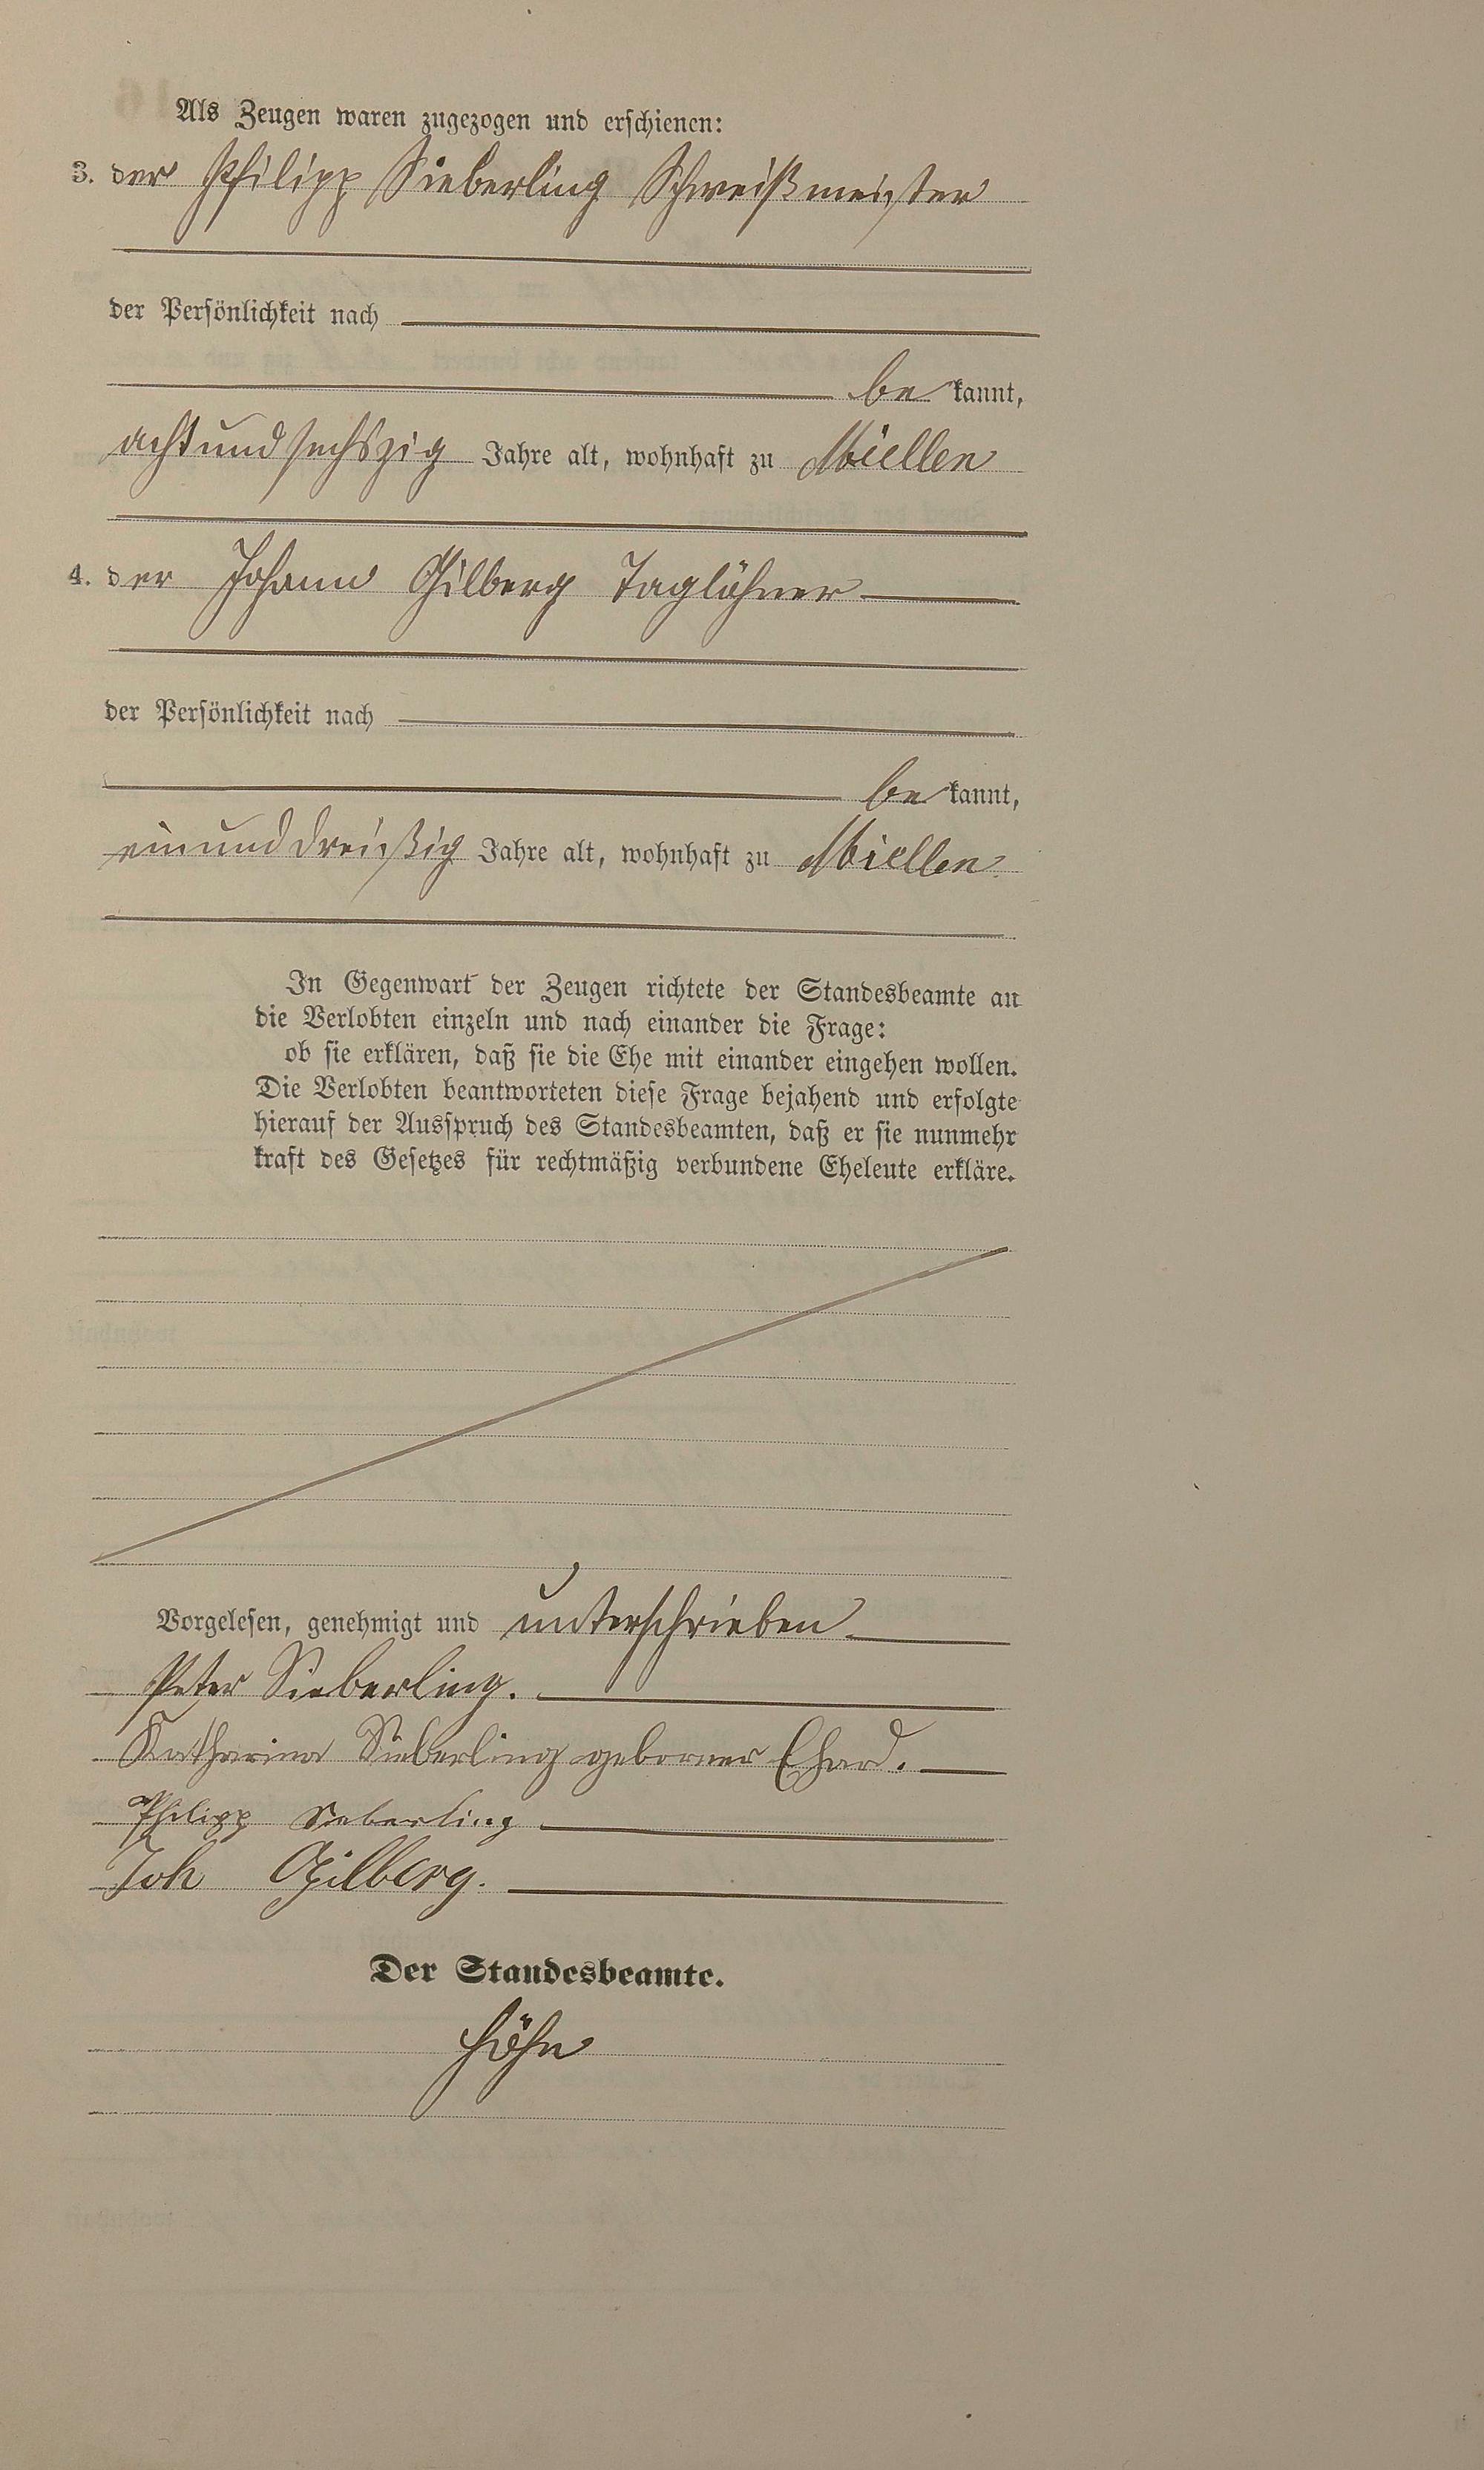 Als Zeugen waren zugezogen und erschienen:
3. der Philipp Sieberling Schweißmeister
der Persönlichkeit nach
be kannt,
achtundsechszig Jahre alt, wohnhaft zu Miellen
4. der Johann Gilberg Taglöhner
der Persönlichkeit nach
be kannt,
einunddreißig Jahre alt, wohnhaft zu Miellen
In Gegenwart der Zeugen richtete der Standesbeamte an
die Verlobten einzeln und nach einander die Frage:
ob sie erklären, daß sie die Ehe mit einander eingehen wollen.
Die Verlobten beantworteten diese Frage bejahend und erfolgte
hierauf der Ausspruch des Standesbeamten, daß er sie nunmehr
kraft des Gesetzes für rechtmäßig verbundene Eheleute erkläre.
Vorgelesen, genehmigt und unterschrieben
Peter Sieberling.
Katharina Sieberling geborner Ehard.
Philipp Sieberling
Joh Gilberg.
Der Standesbeamte.
Höhn